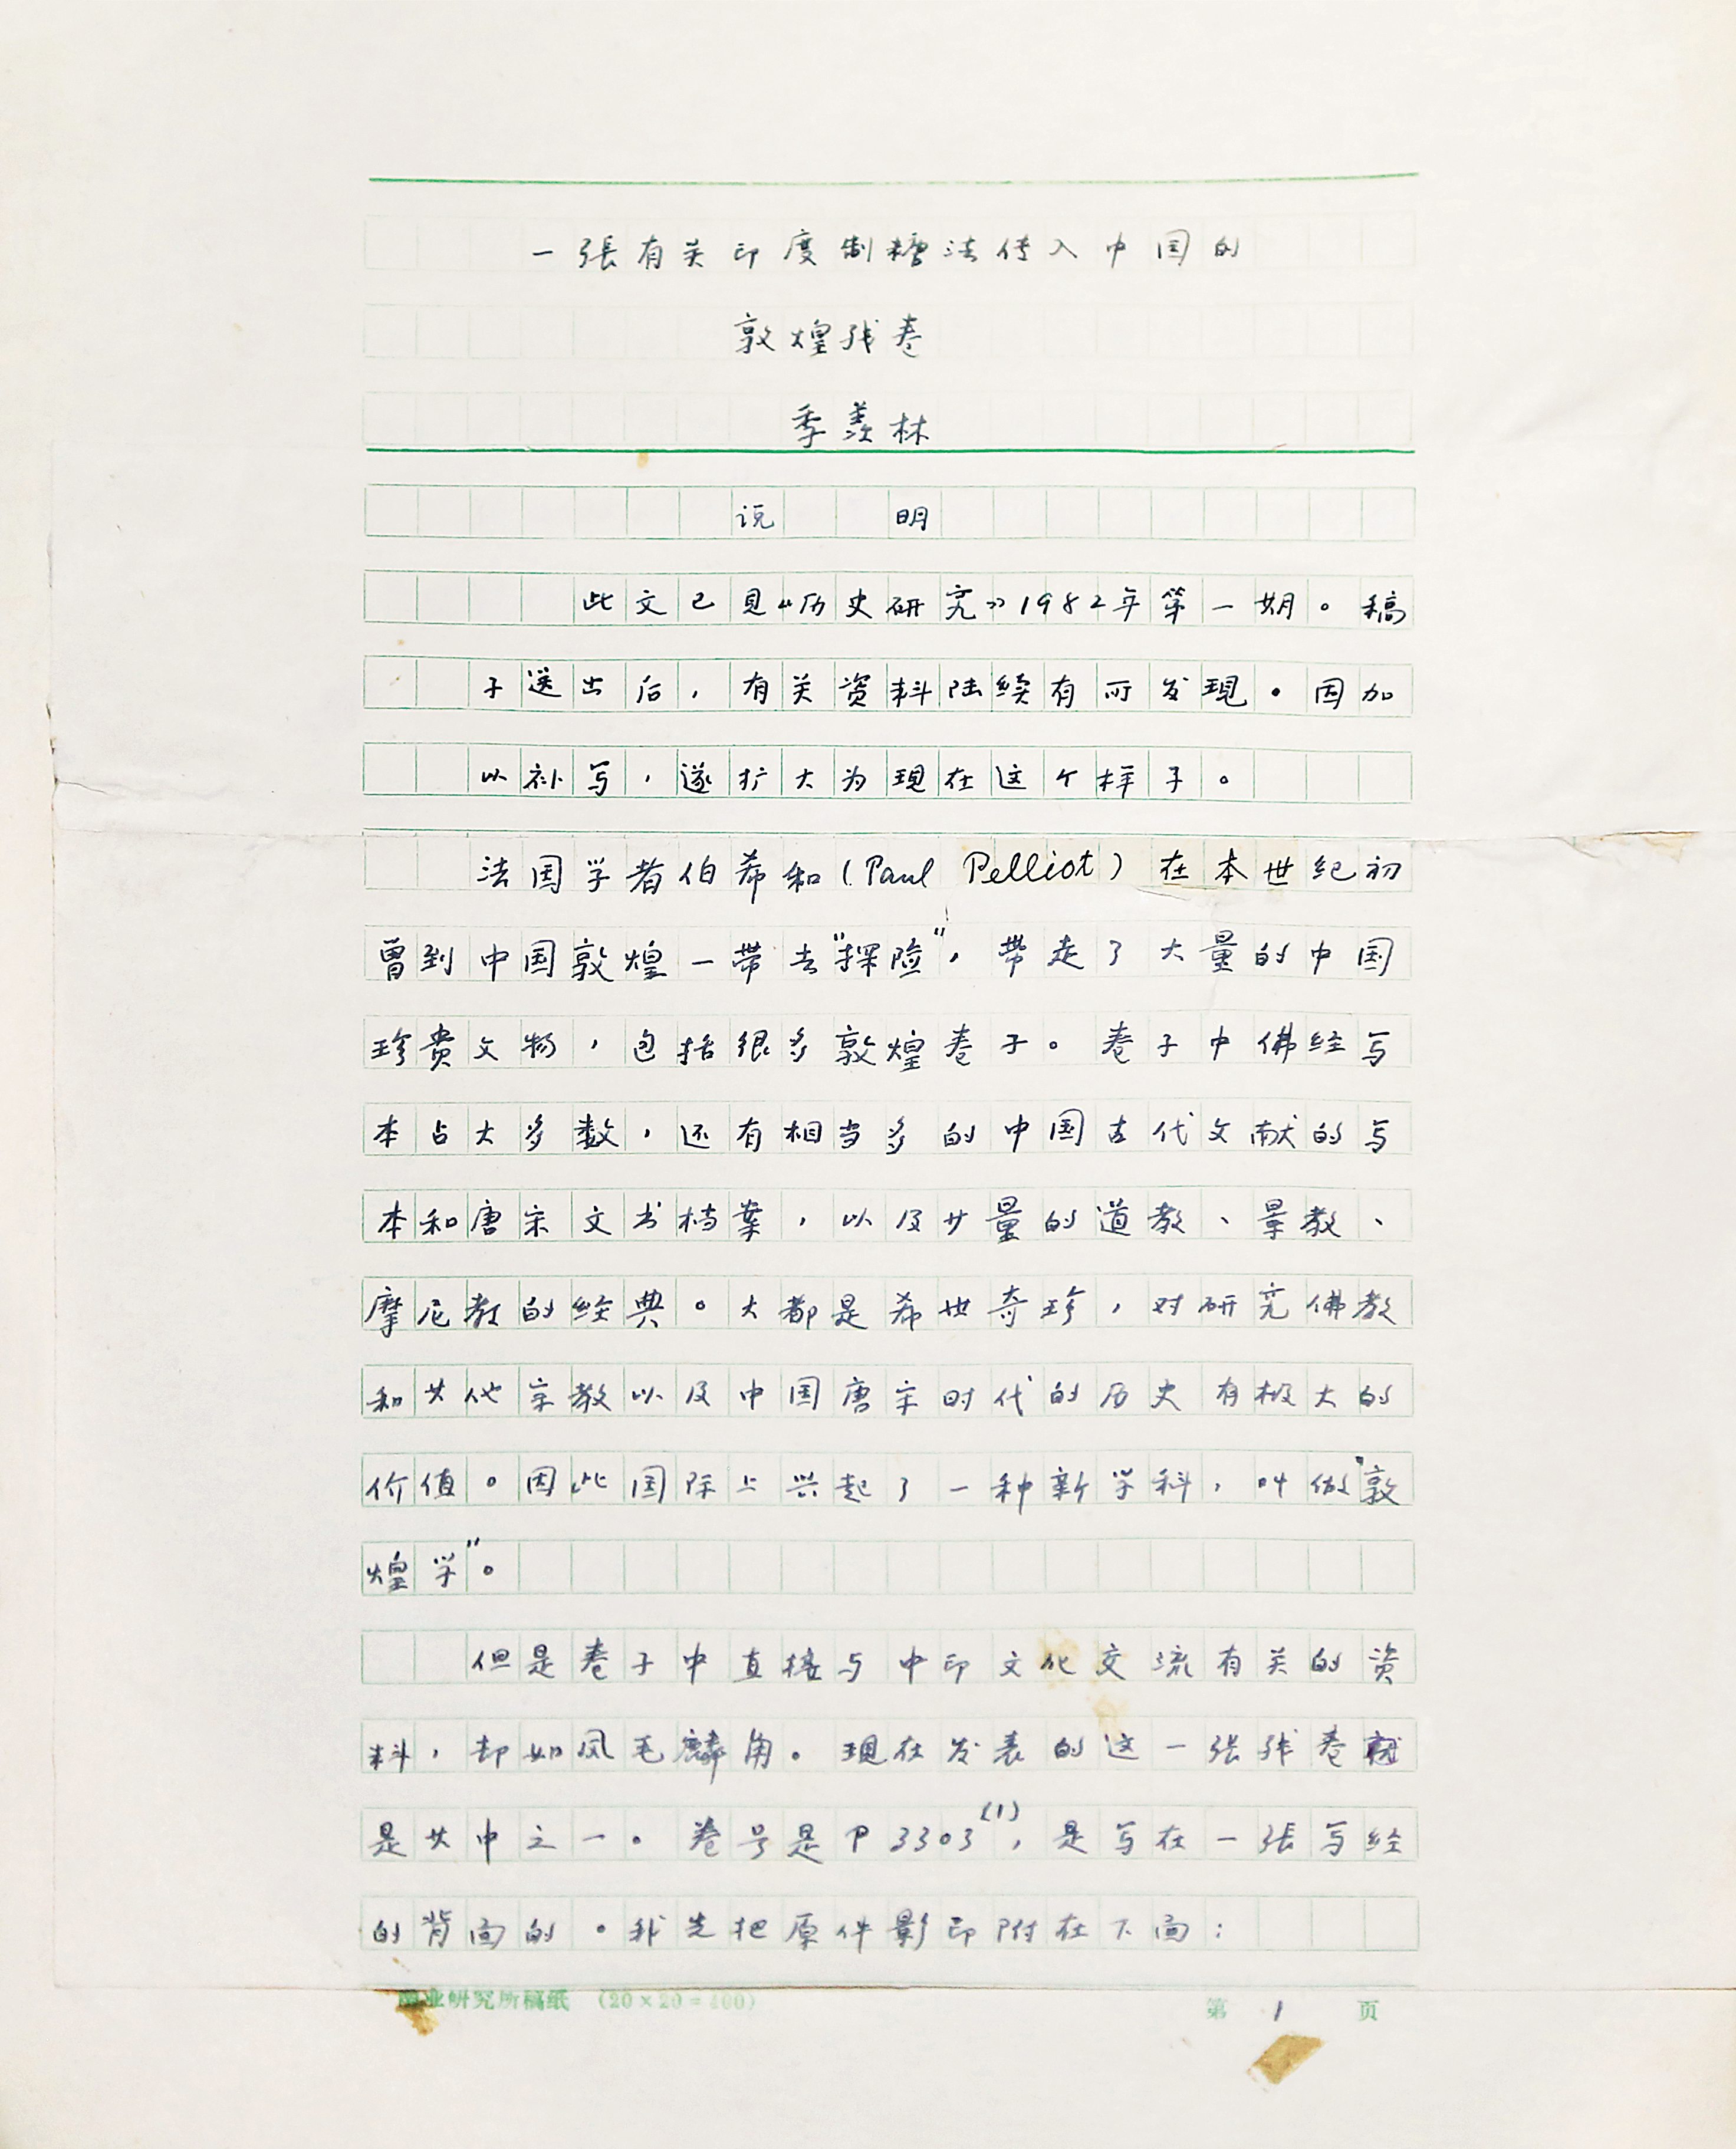 一張有关印度制糖法传入中国的
敦煌残卷
季羡林
说 明
此文已见《历史研究》1982年第一期。稿
子送出后，有关资料陆续有所发現。因加
以补写，遂扩大为現在这个样子。
法国学者伯希和(Paul Pelliot)在本世纪初
曾到中国敦煌一带去"探险"，带走了大量的中国
珍贵文物，包括很多敦煌卷子。卷子中佛经写
本占大多数，还有相当多的中国古代文献的写
本和唐宋文书档案，以及少量的道教、景教、
摩尼教的经典。大都是希世奇珍，对研究佛教
和其他宗教以及中国唐宋时代的历史有极大的
价值。因此国际上兴起了一种新学科，叫做"敦
煌学"。
但是卷子中直接与中印文化交流有关的资
料，却如凤毛麟角。現在发表的这一张残卷就
是其中之一。卷号是P 3303(1)，是写在一張写经
的背面的。我先把原件影印附在下面：
业研究所稿纸 （20×20=400） 第 1 页